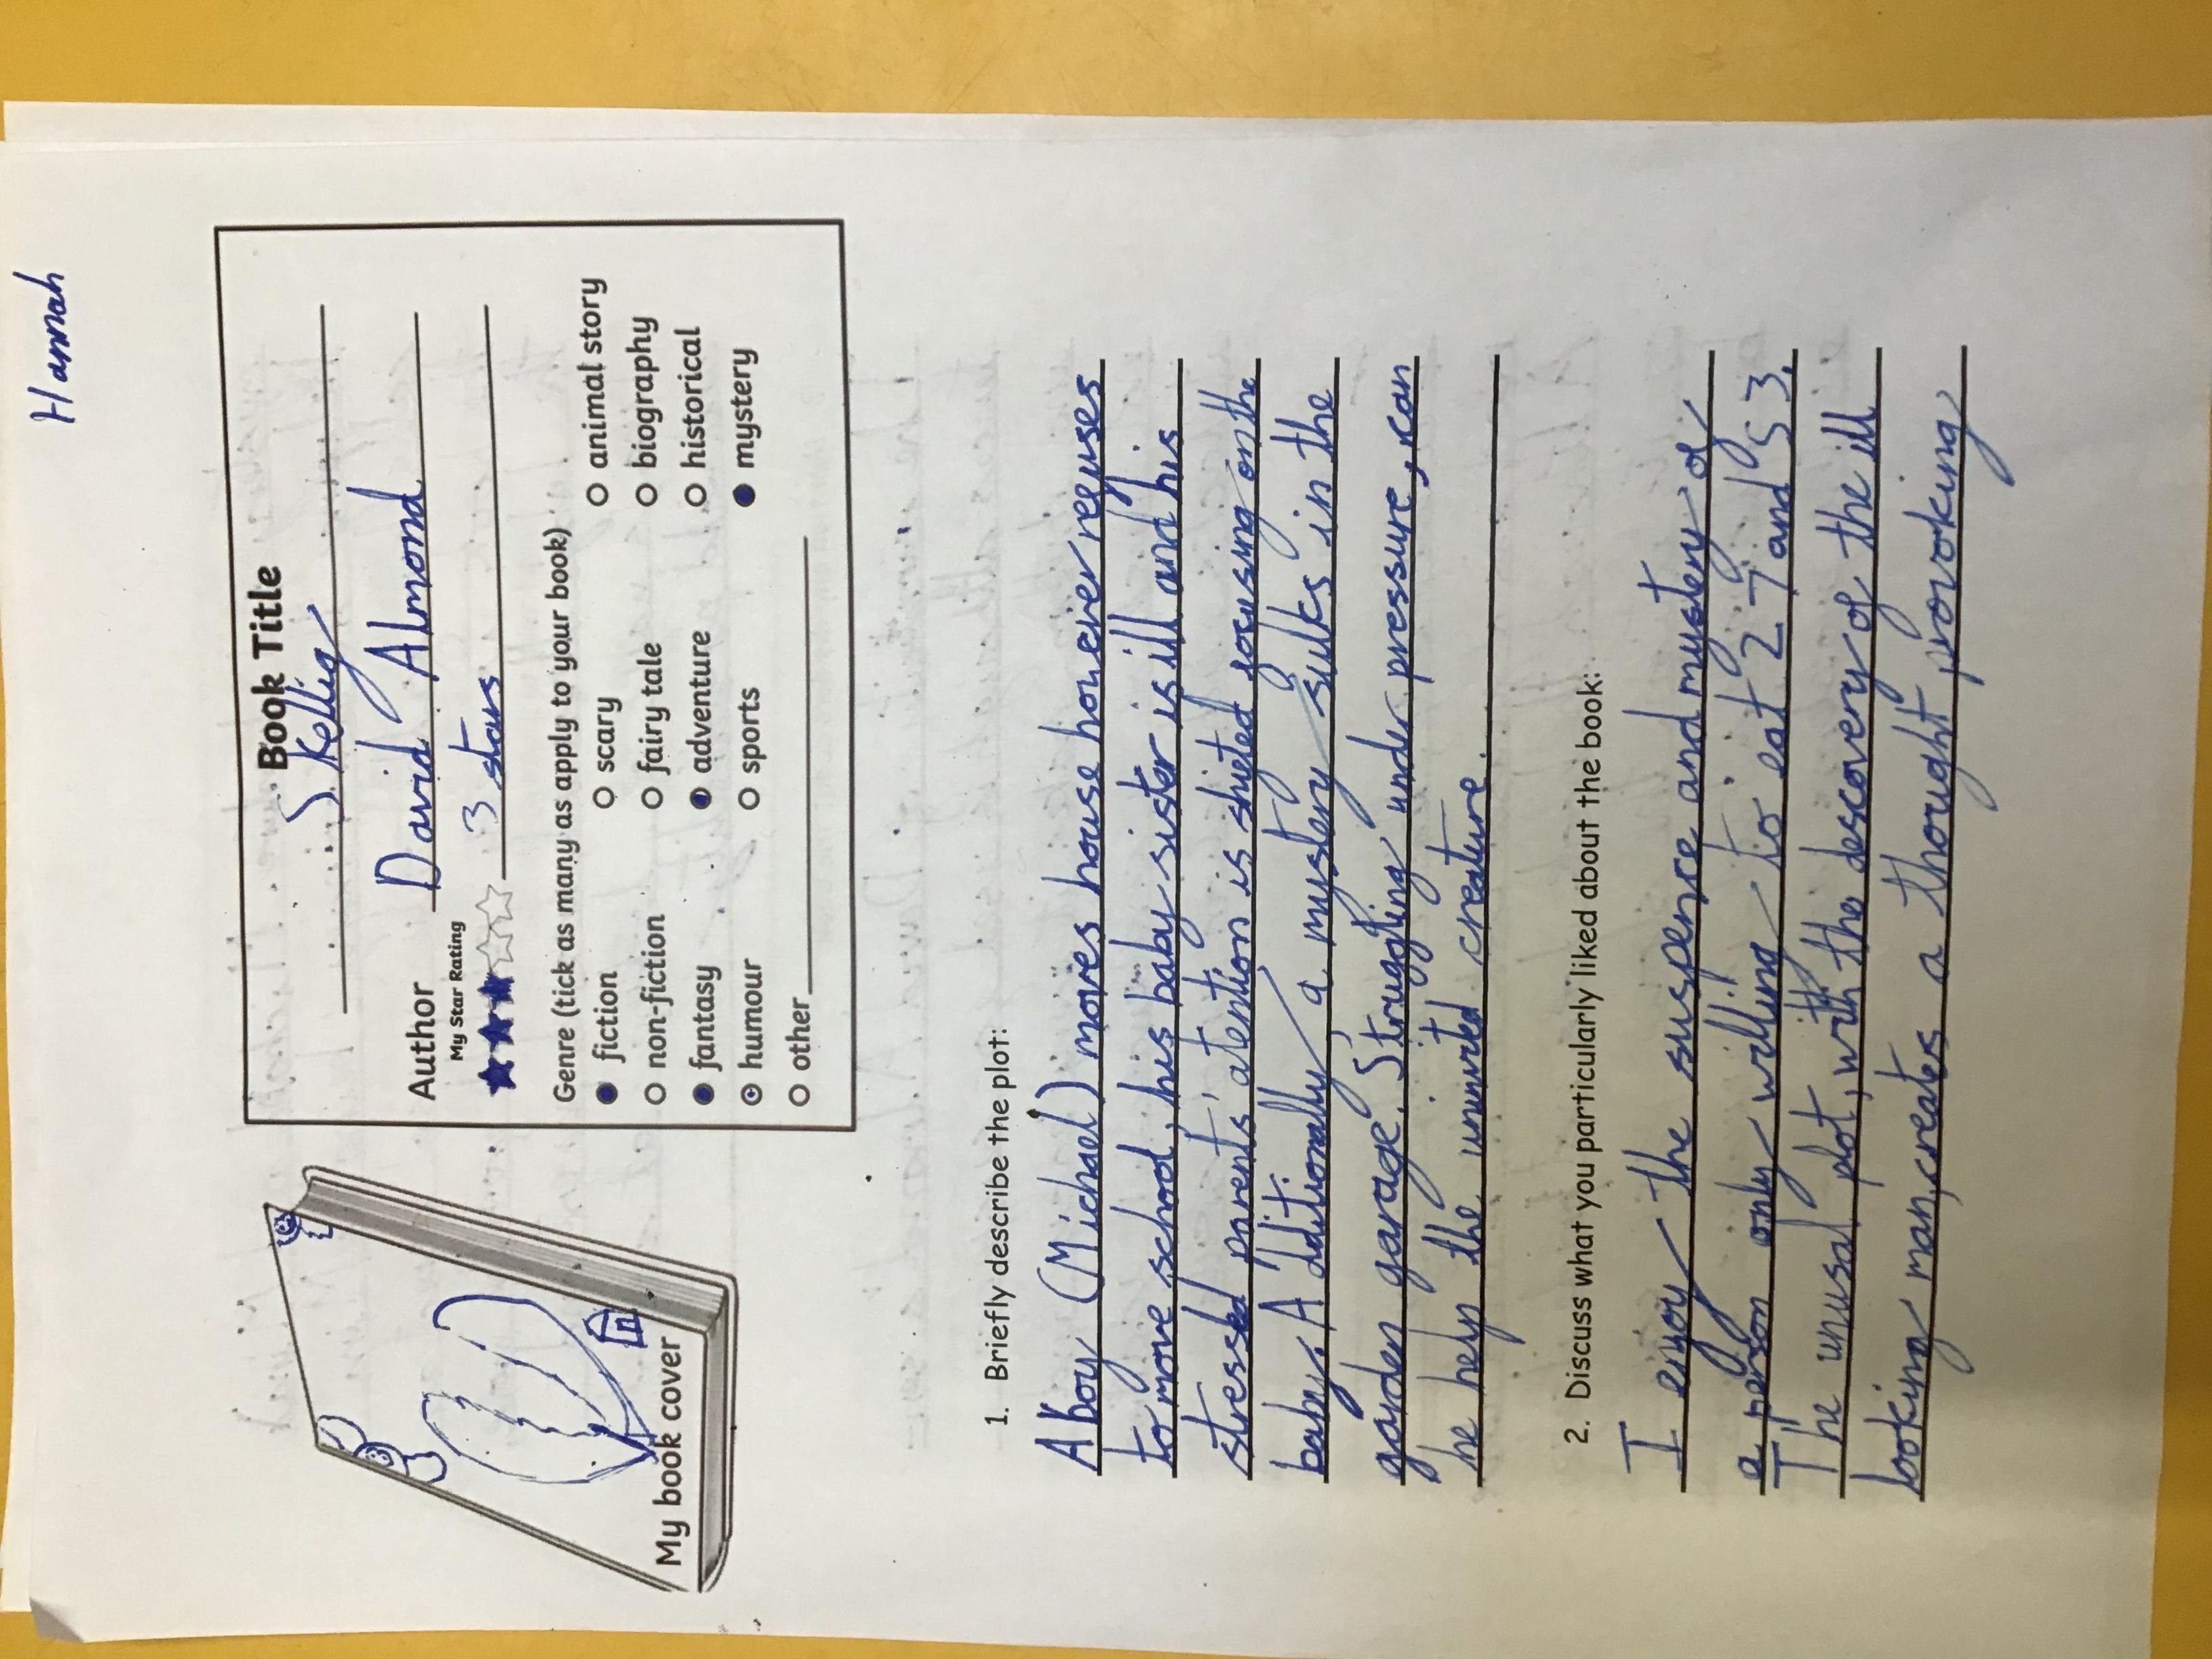 Hannah
Book Title
Skellig
Author David Almond
My Star Rating
3 stars
Genre (tick as many as apply to your book)
fiction scary animal story
non-fiction fairy tale biography
fantasy adventure historical
humour sports mystery
other
My book cover
1. Briefly describe the plot:
A boy (Michael) moves house however refuses
to move school, his baby sister is ill and his
stressed parents' atention is shifted focusing on the
baby. Additionally a mystery sulks in the
garden garage. Struggling under pressure, can
he help the uninvited creature.
2. Discuss what you particularly liked about the book:
I enjoy the suspence and mystery of
a person only willing to eat 27 and 53.
The unusal plot, with the descovery of the ill
looking man, creates a thought provoking